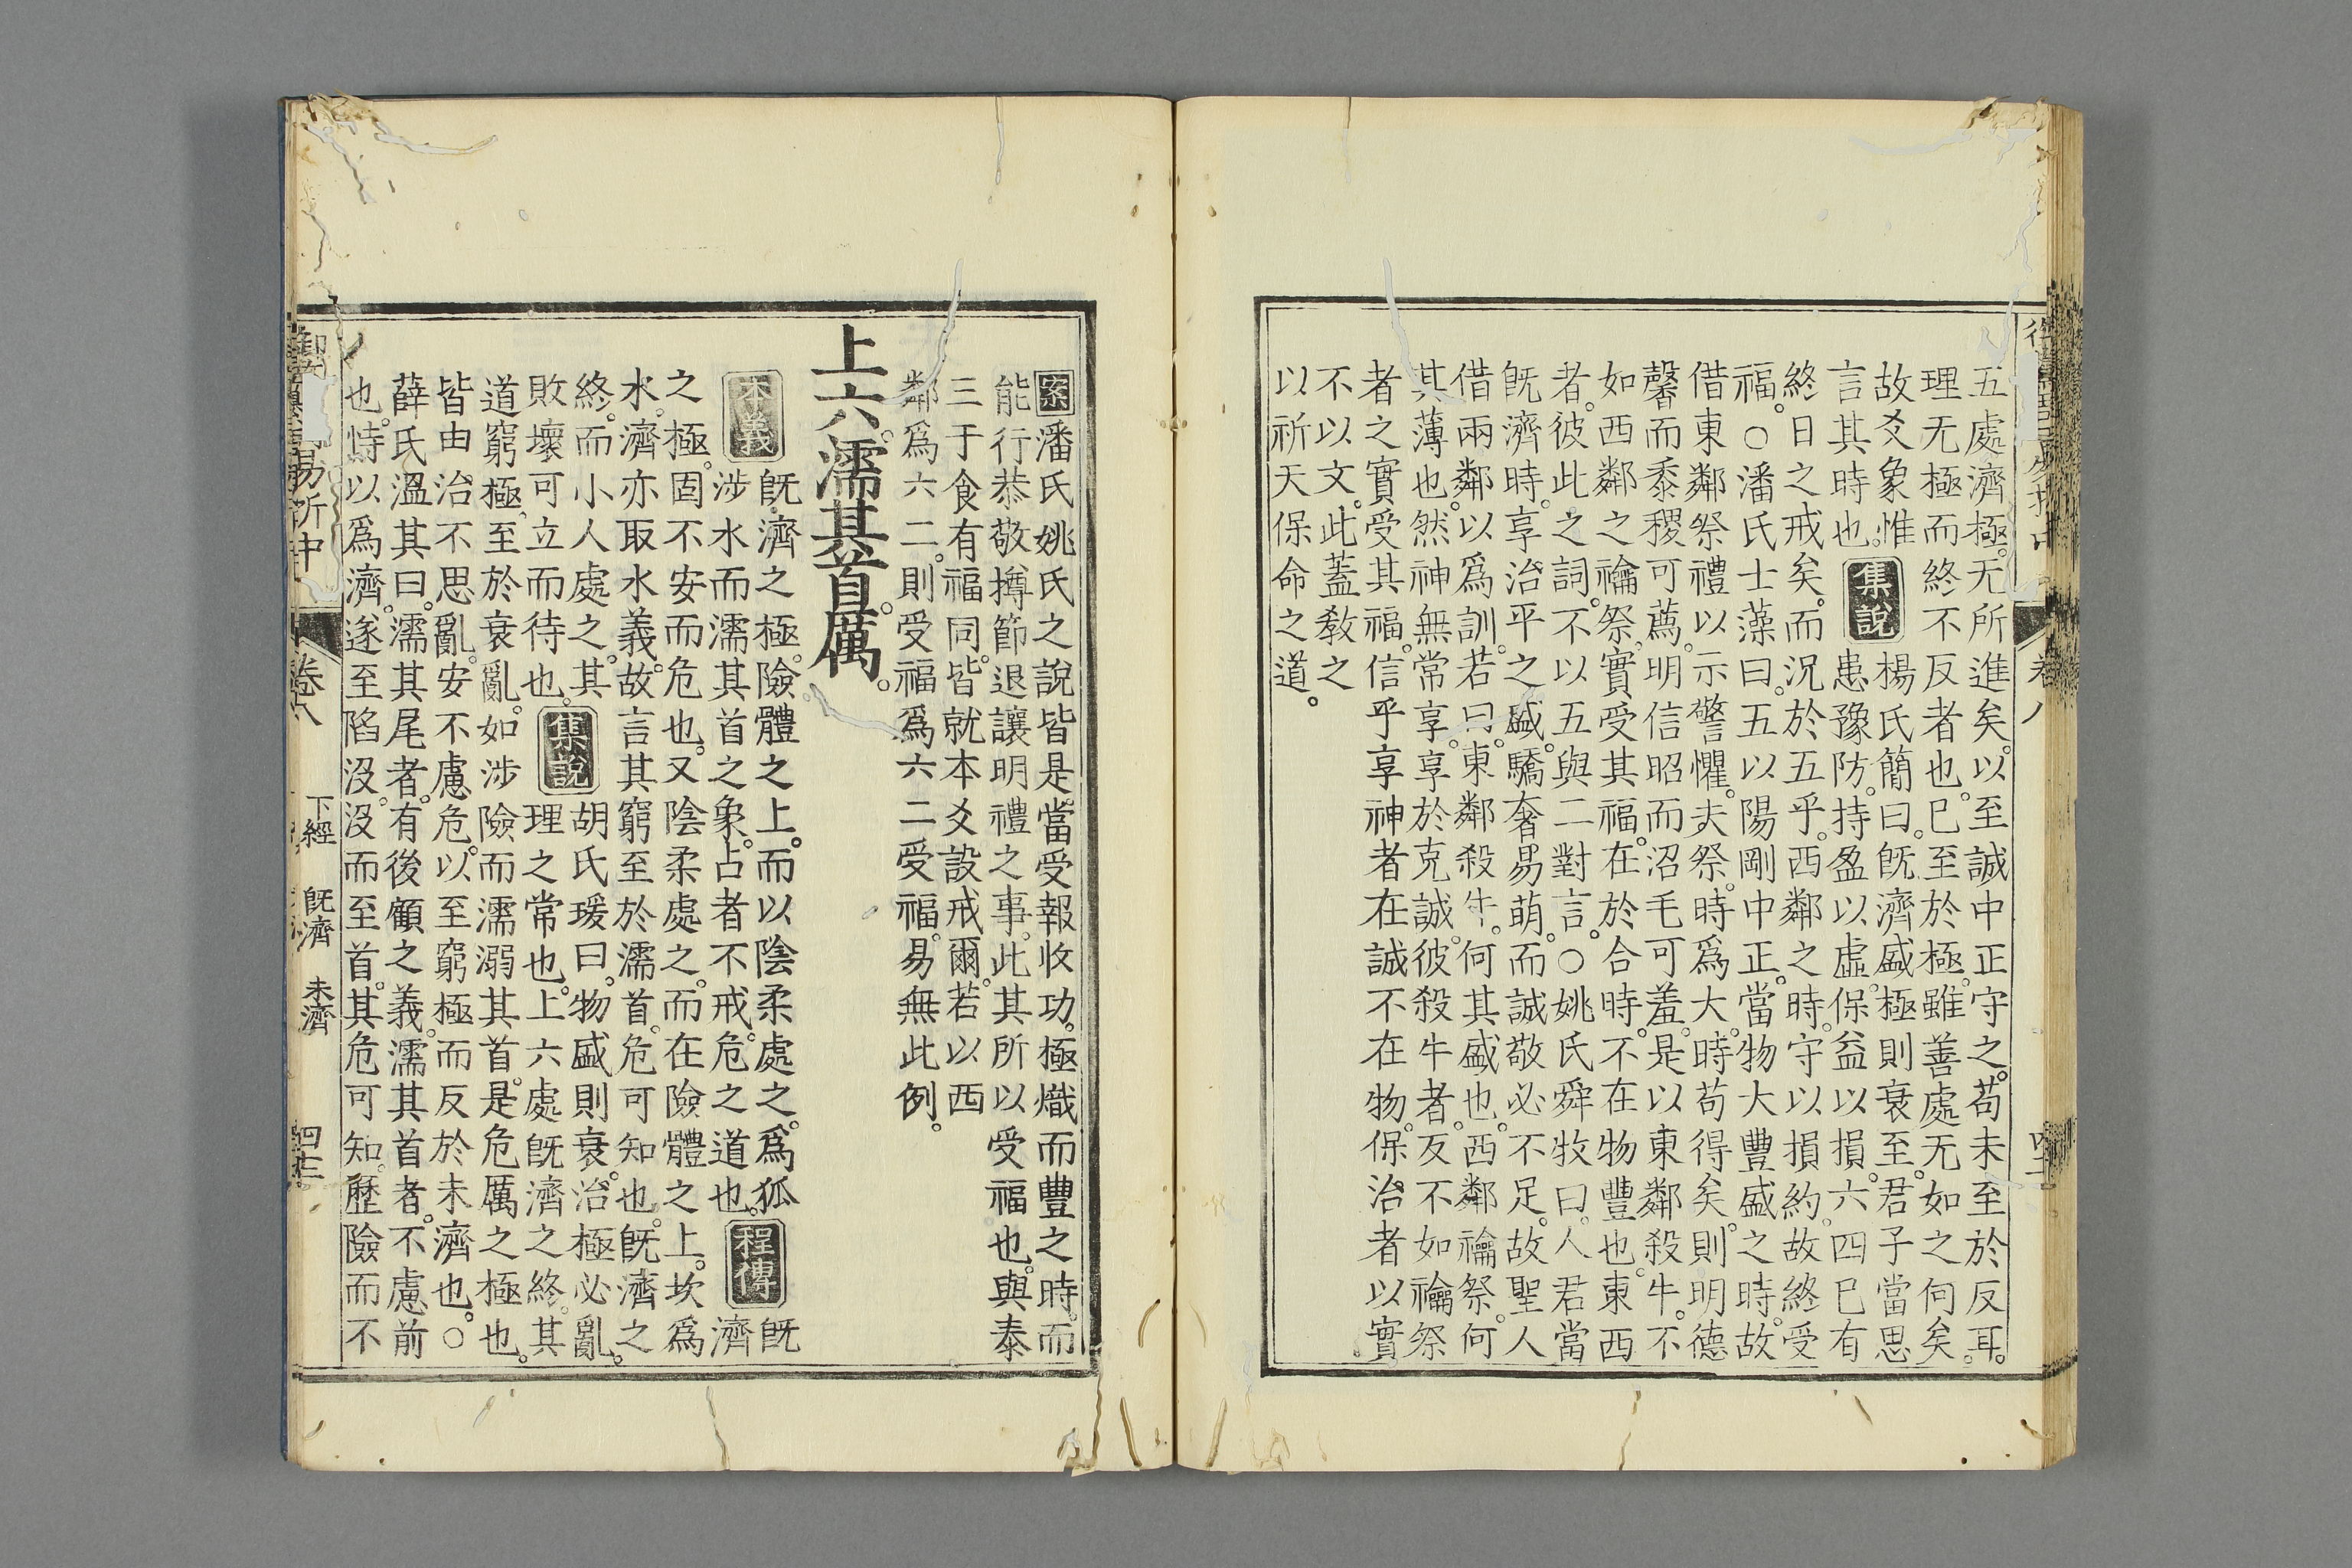 五處濟極。无所進矣。以至誠中正守之。苟未至於反耳。
理无極而終不反者也。已至於極。雖善處无如之何矣。
故爻象惟
言其時也。集說楊氏簡曰。旣濟盛極則衰至。君子當思
患豫防。持盈以虛。保益以損。六四已有
終日之戒矣。而況於五乎。西鄰之時。守以損約。故終受
福。○潘氏士藻曰。五以陽剛中正。當物大豐盛之時。故
借東鄰祭禮以示警懼。夫祭。時爲大。時苟得矣。則明德
馨而黍稷可薦。明信昭而沼毛可羞。是以東鄰殺牛。不
如西鄰之禴祭。實受其福。在於合時。不在物豐也。東西
者。彼此之詞。不以五與二對言。○姚氏舜牧曰。人君當
旣濟時。享治平之盛。驕奢易萌。而誠敬必不足。故聖人
借兩鄰以爲訓。若曰。東鄰殺牛。何其盛也。西鄰禴祭。何
其薄也。然神無常享。享於克誠。彼殺牛者。反不如禴祭
者之實受其福。信乎享神者在誠不在物。保治者以實
不以文。此蓋敎之
以祈天保命之道。
卷八
案潘氏姚氏之說皆是。當受報收功。極熾而豐之時。而
能行恭敬撙節退讓明禮之事。此其所以受福也。與泰
三于食有福同。皆就本爻設戒爾。若以西
鄰爲六二。則受福爲六二受福。易無此例。
上六。濡其首。厲。
本義旣濟之極。險體之上。而以陰柔處之。爲狐
涉水而濡其首之象。占者不戒。危之道也。程傳旣濟
之極。固不安而危也。又陰柔處之。而在險體之上。坎爲
水。濟亦取水義。故言其窮至於濡首。危可知也。旣濟之
終。而小人處之。其
敗壞可立而待也。集說胡氏瑗曰。物盛則衰。治極必亂。
理之常也。上六處旣濟之終。其
道窮極。至於衰亂。如涉險而濡溺其首。是危厲之極也。
皆由治不思亂。安不慮危。以至窮極而反於未濟也。○
薛氏溫其曰。濡其尾者。有後顧之義。濡其首者。不慮前
也。恃以爲濟。遂至陷沒。沒而至首。其危可知。歷險而不
易折中
卷八
下經 旣濟 未濟
四十三